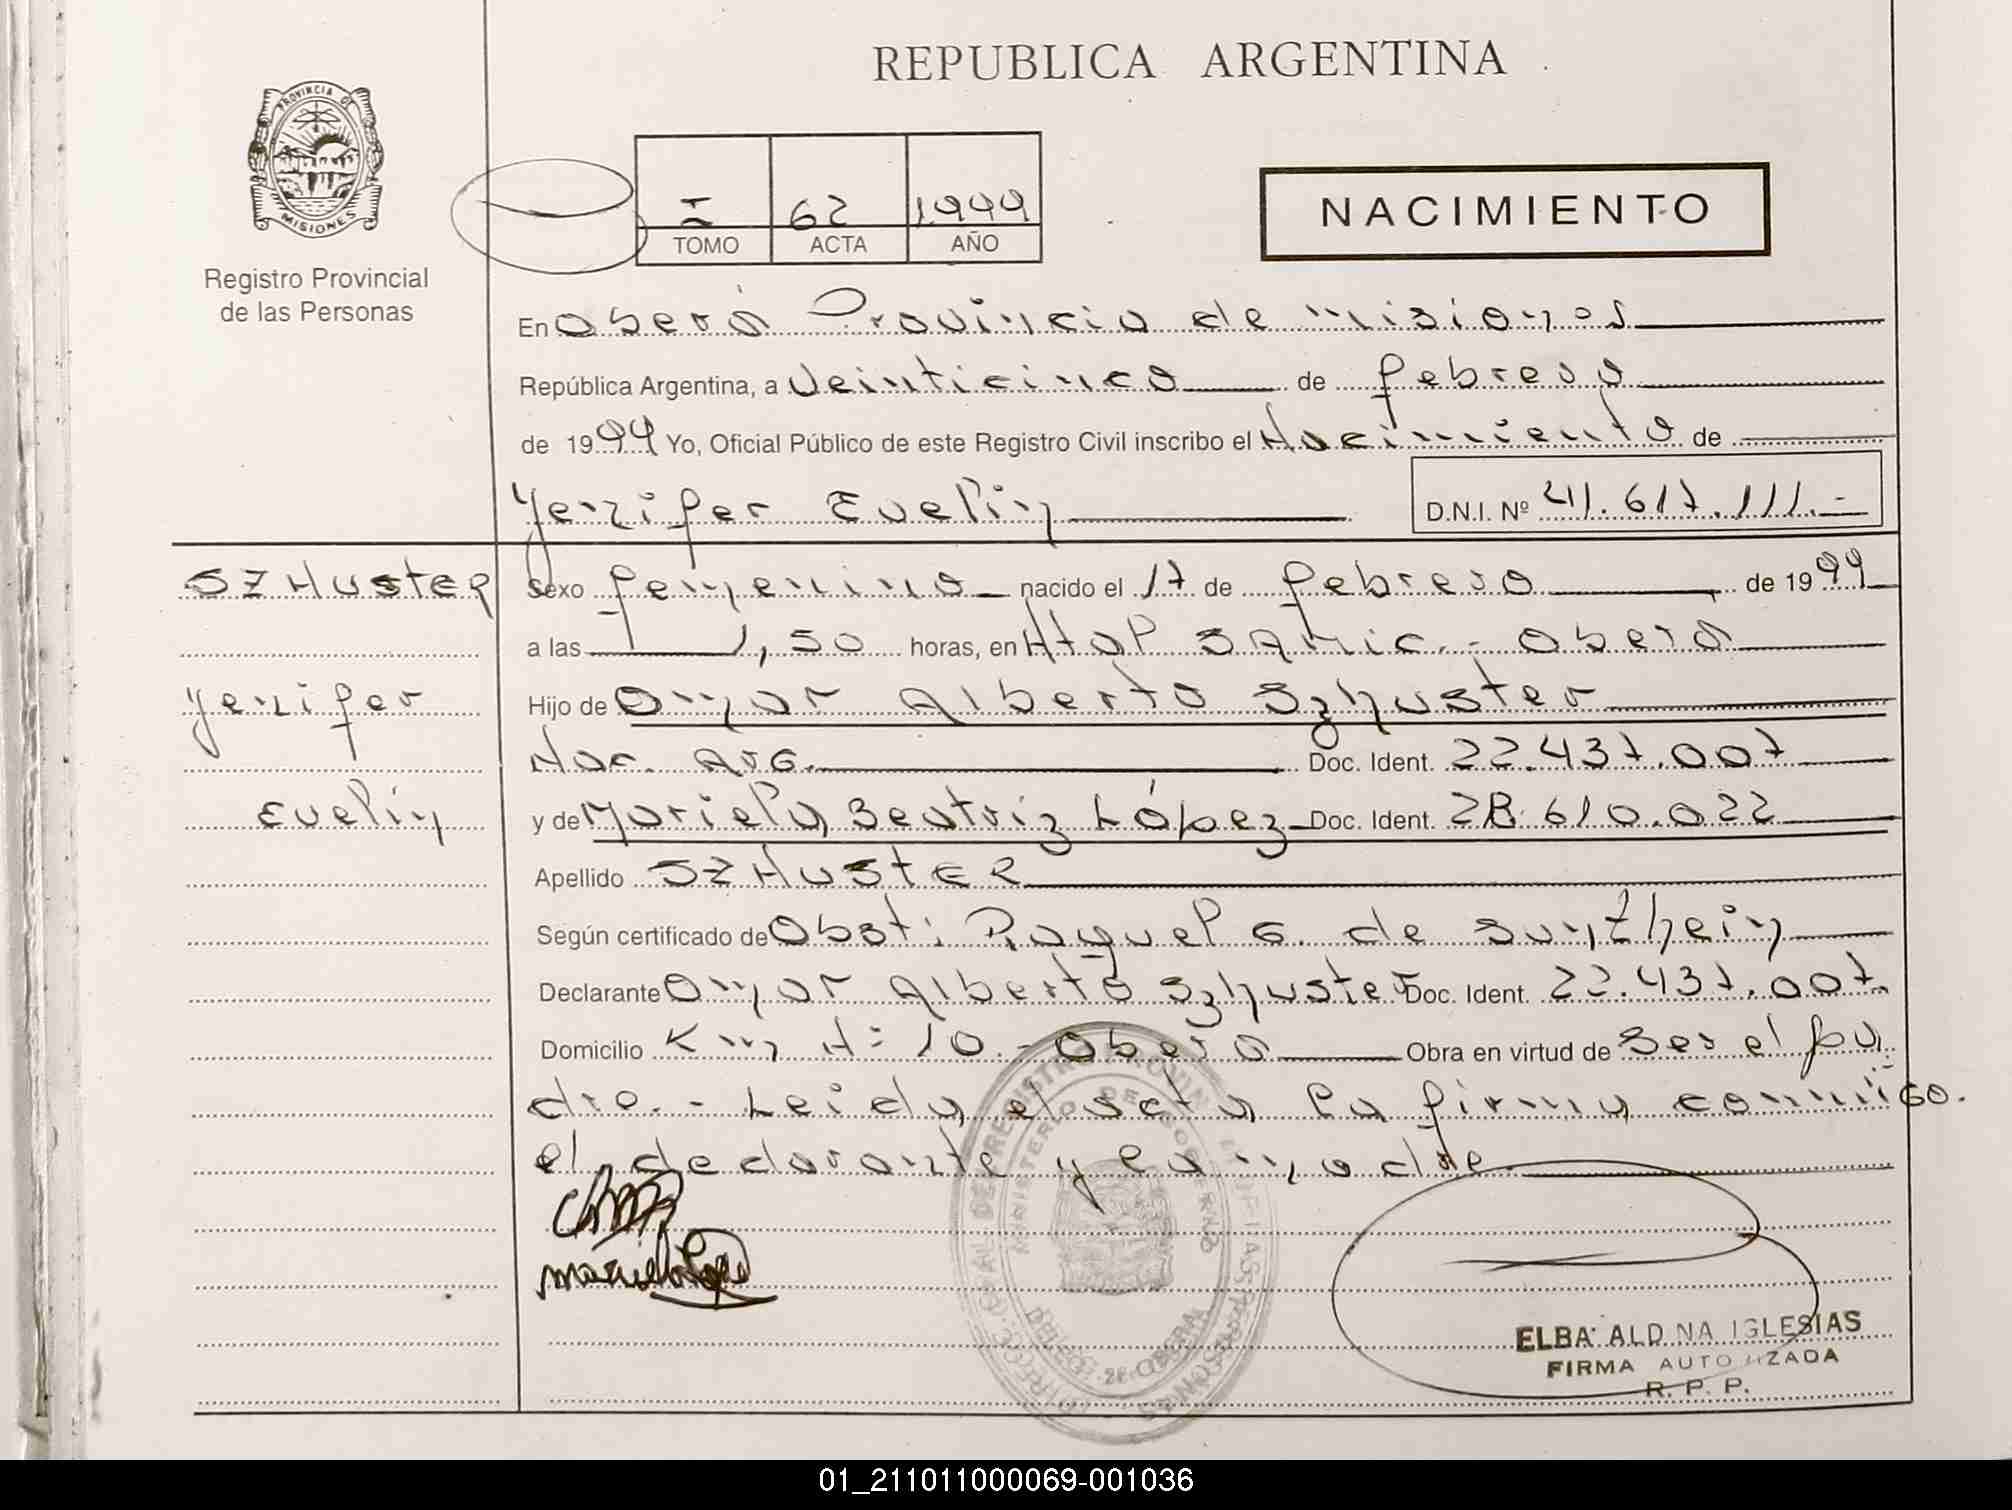 REPUBLICA ARGENTINA
PROVINCIA DE
MISIONES
Registro Provincial
de las Personas
I 62 1999
TOMO ACTA AÑO
NACIMIENTO
En Oberá Provincia de Misiones
República Argentina, a Veinticinco de febrero
de 1999 Yo, Oficial Público de este Registro Civil inscribo el Nacimiento de
Yenifer Evelin D.N.I. Nº 41.617.111.-
SZHUSTER
Yenifer
Evelin
Sexo femenino nacido el 17 de febrero de 1999
a las 1,50 horas, en Htal SAMIC.- Oberá
Hijo de Omar Alberto Szhuster
Nac. Arg. Doc. Ident. 22.437.007
y de Mariela Beatriz López Doc. Ident. 28.610.022
Apellido SZHUSTER
Según certificado de Obst: Raquel G. de Sunthein
Declarante Omar Alberto Szhuster Doc. Ident. 22.437.007.
Domicilio Km Nº 10.- Oberá Obra en virtud de Ser el pa
dre.- Leida el acta la firma conmigo.
el declarante y la madre
ELBA ALDINA IGLESIAS
FIRMA AUTORIZADA
R. P. P.
01_211011000069-001036